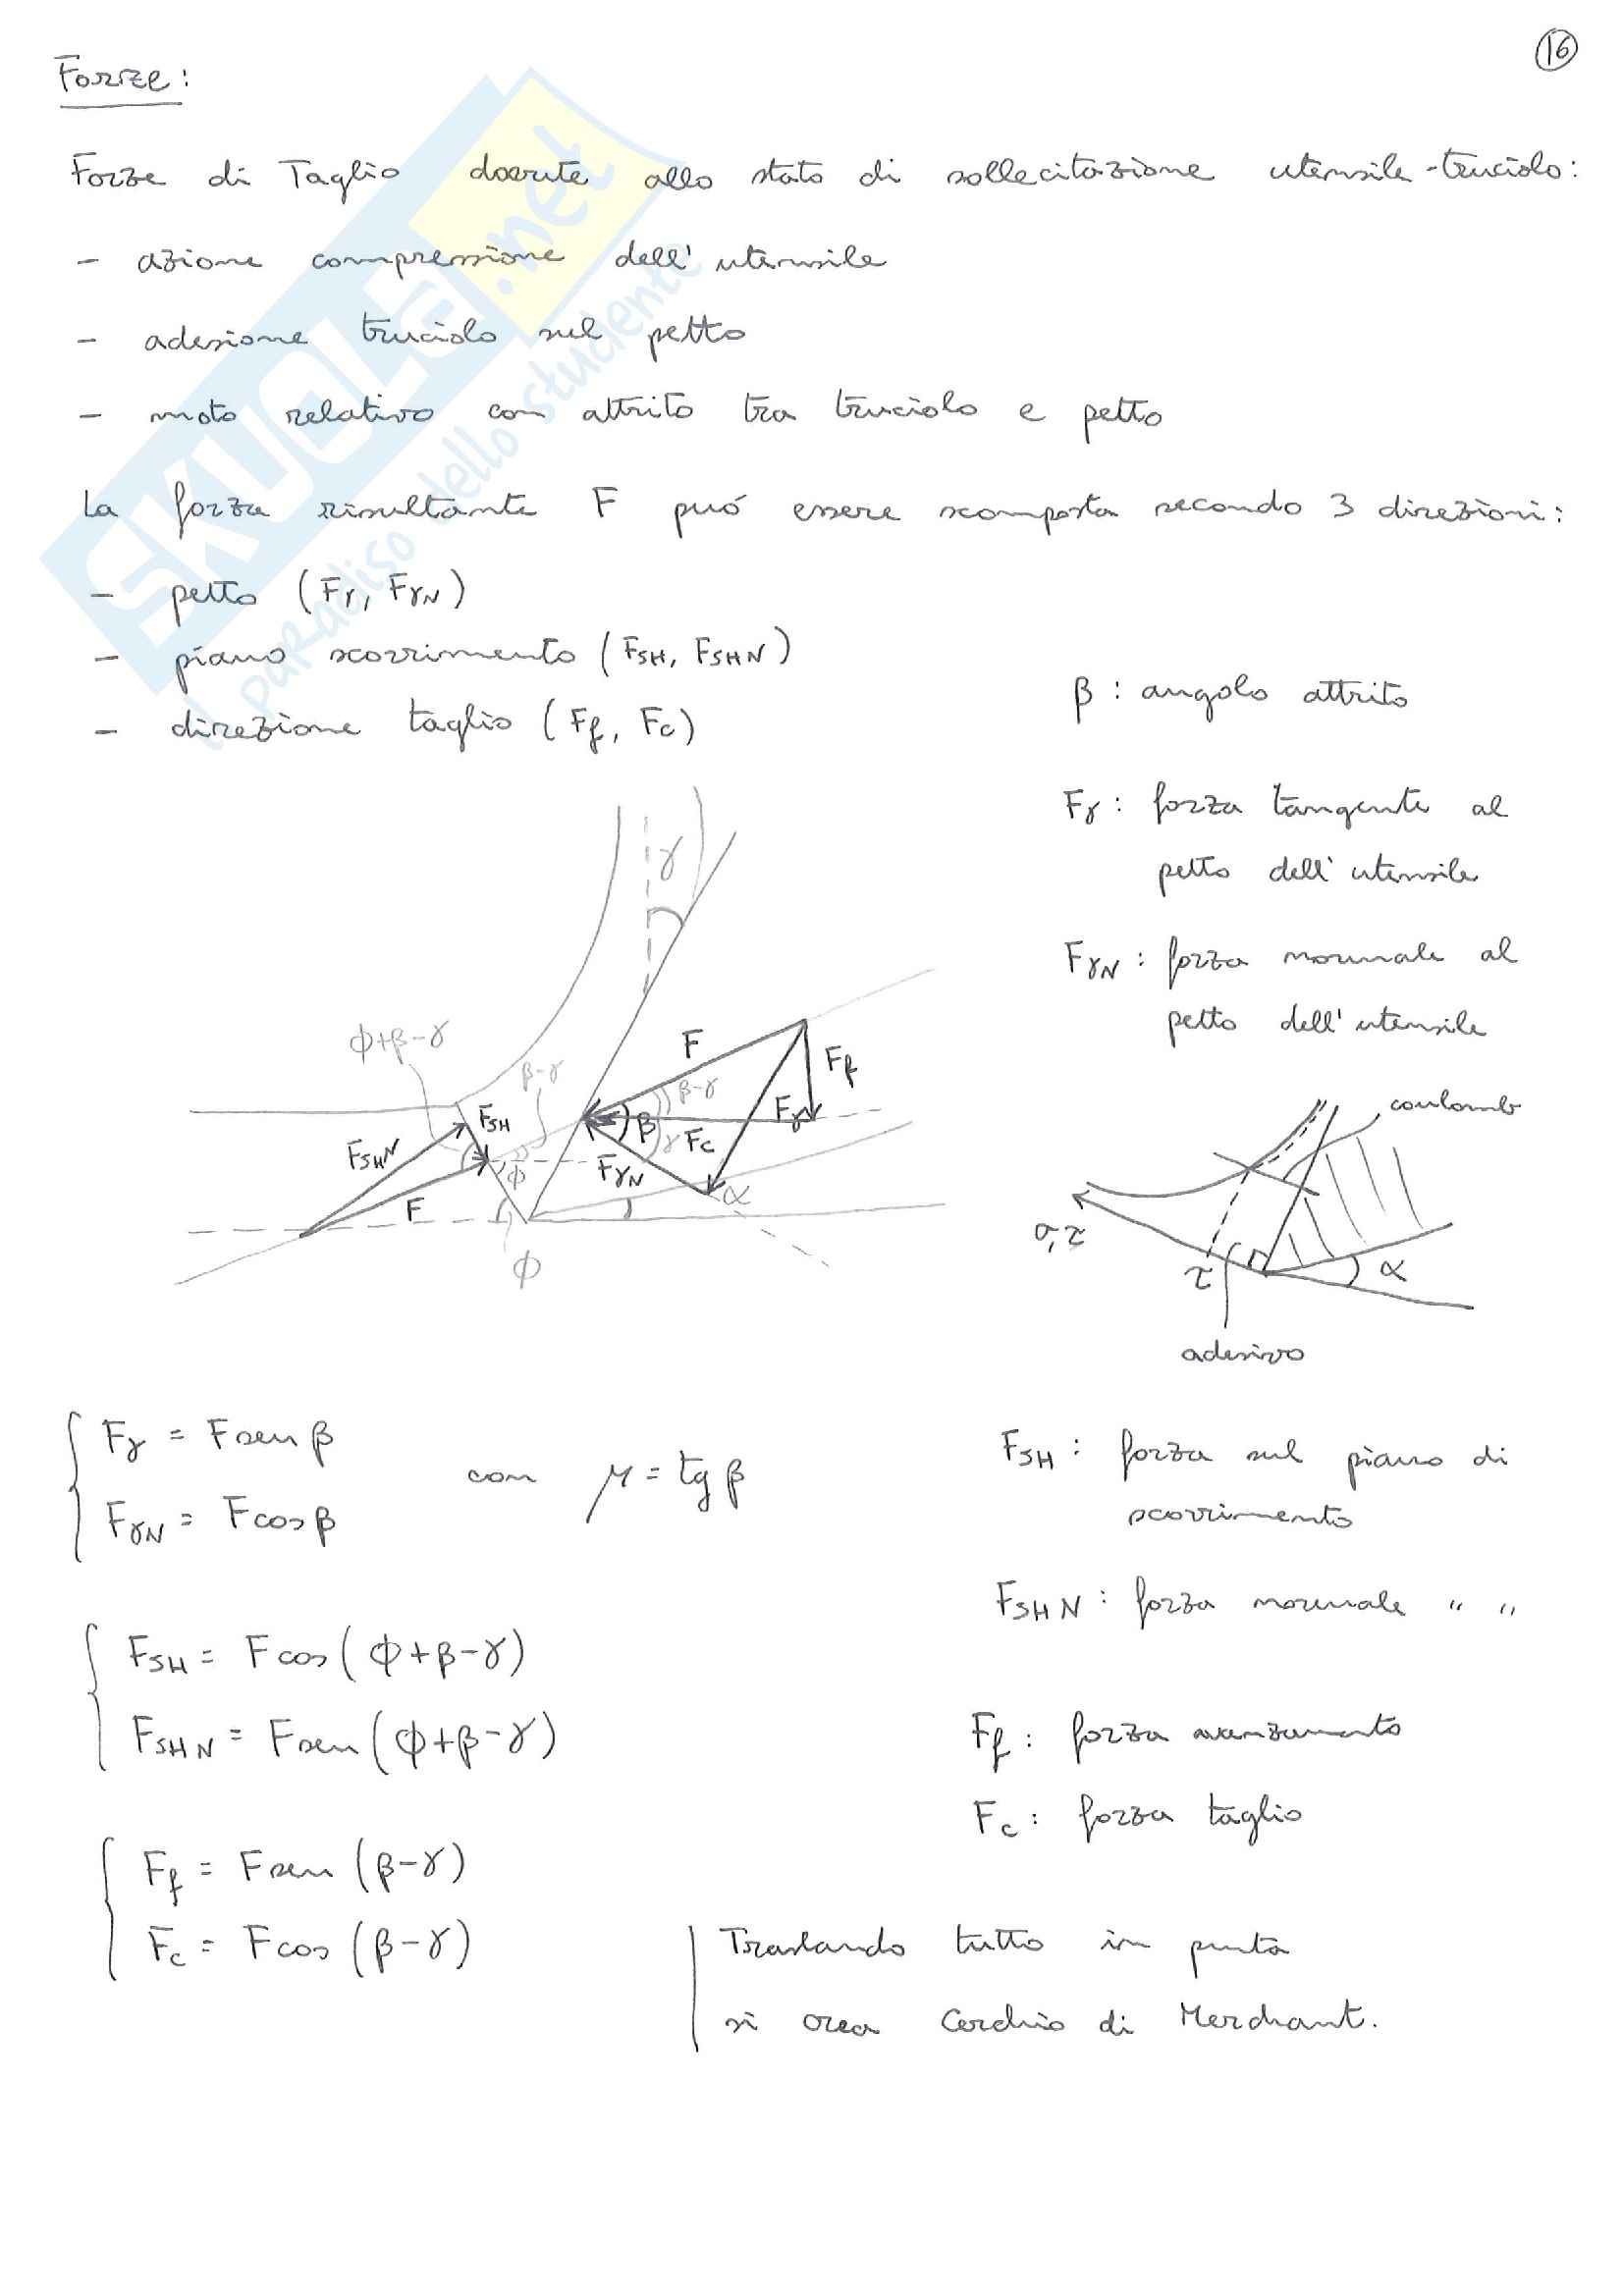 16
Forze:
Forze di Taglio dovute allo stato di sollecitazione utensile-truciolo:
- azione compressione dell'utensile
- adesione truciolo sul petto
- moto relativo con attrito tra truciolo e petto
La forza risultante F puó essere scomposta secondo 3 direzioni:
- petto (Fγ, FγN)
- piano scorrimento (FSH, FSHN)
- direzione taglio (Ff, Fc)
β : angolo attrito
Fγ : forza tangente al
petto dell'utensile
FγN : forza normale al
petto dell'utensile
γ
ϕ+β-γ
β-γ
F
Ff
β-γ
FSH
β
Fγ
γ
Fc
FSHN
FγN
ϕ
α
F
ϕ
coulomb
σ, τ
τ
α
adesivo
Fγ = F sen β
FγN = F cos β
con μ = tg β
FSH : forza sul piano di
scorrimento
FSHN : forza normale " "
FSH = F cos (ϕ+β-γ)
FSHN = F sen (ϕ+β-γ)
Ff : forza avanzamento
Fc : forza taglio
Ff = F sen (β-γ)
Fc = F cos (β-γ)
Traslando tutto in punta
si crea Cerchio di Merchant.
SKUOLA.net
il paradiso dello studente